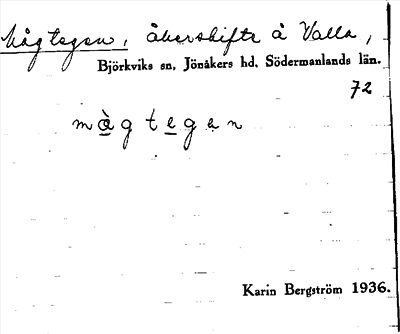 Mågtegen, åkerskifte å Valla,
Björkviks sn. Jönåkers hd. Södermanlands län.
72
mågtegen
Karin Bergström 1936.